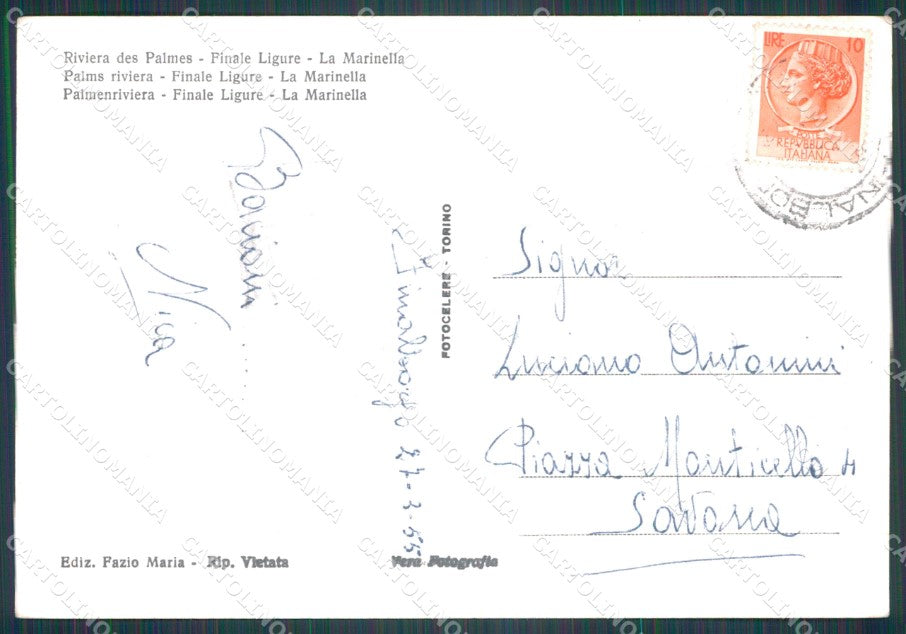 Riviera des Palmes - Finale Ligure - La Marinella
Palms riviera - Finale Ligure - La Marinella
Palmenriviera - Finale Ligure - La Marinella
LIRE 10
POSTE
REPVBBLICA
ITALIANA
Nica
Finalborgo 27-3-55
FOTOCELERE - TORINO
Signor
Luciano Antonini
Piazza Monticello 4
Savona
Ediz. Fazio Maria - Rip. Vietata
Vera Fotografia
CARTOLINOMANIA